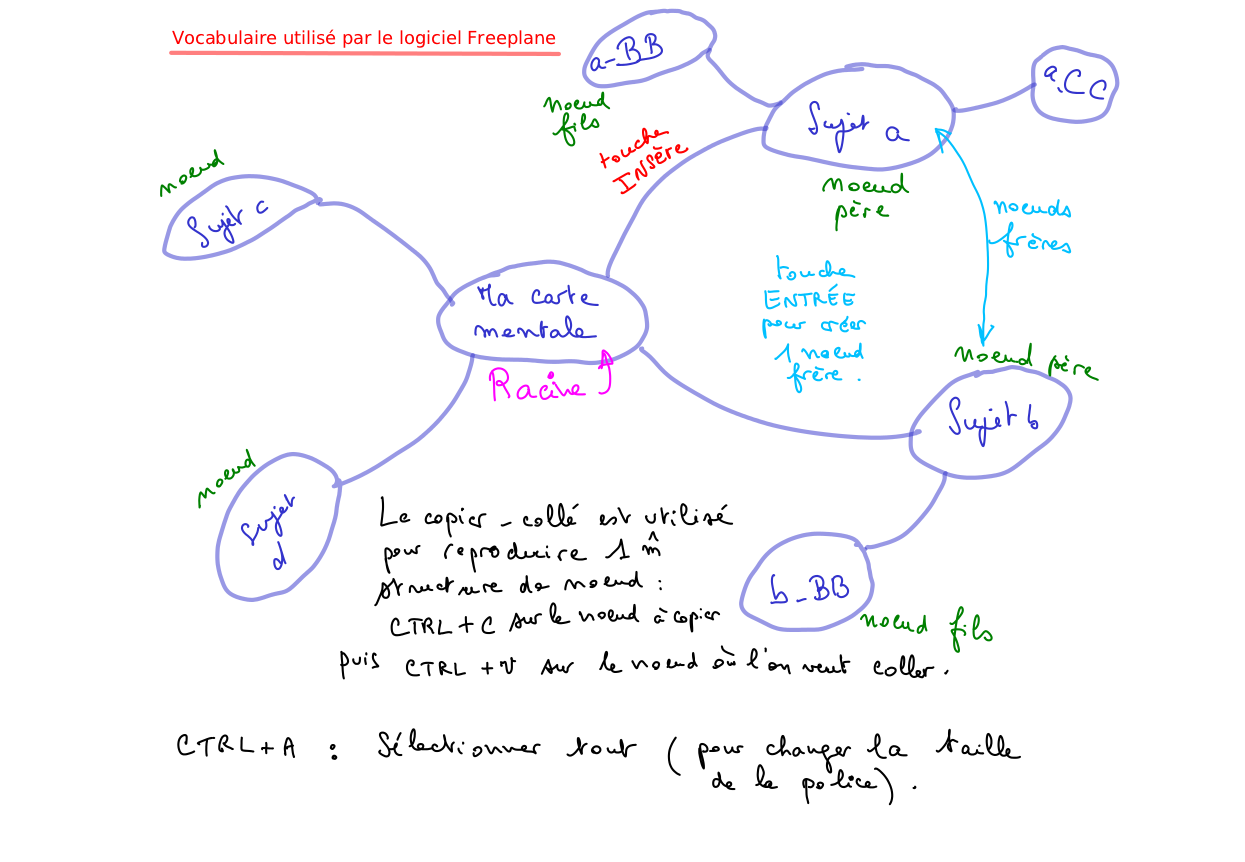 Vocabulaire utilisé par le logiciel Freeplane
a-BB
noeud
fils
a.CC
Sujet a
noeud
père
touche
INSÈRE
noeud
Sujet c
noeuds
frères
Ma carte
mentale
Racine
touche
ENTRÉE
pour créer
1 noeud
frère.
noeud père
Sujet b
noeud
Sujet
d
b-BB
noeud fils
Le copier-collé est utilisé
pour reproduire 1 m̂
structure de noeud :
CTRL+C sur le noeud à copier
puis CTRL+V sur le noeud où l'on veut coller.
CTRL+A : Sélectionner tout (pour changer la taille
de la police).